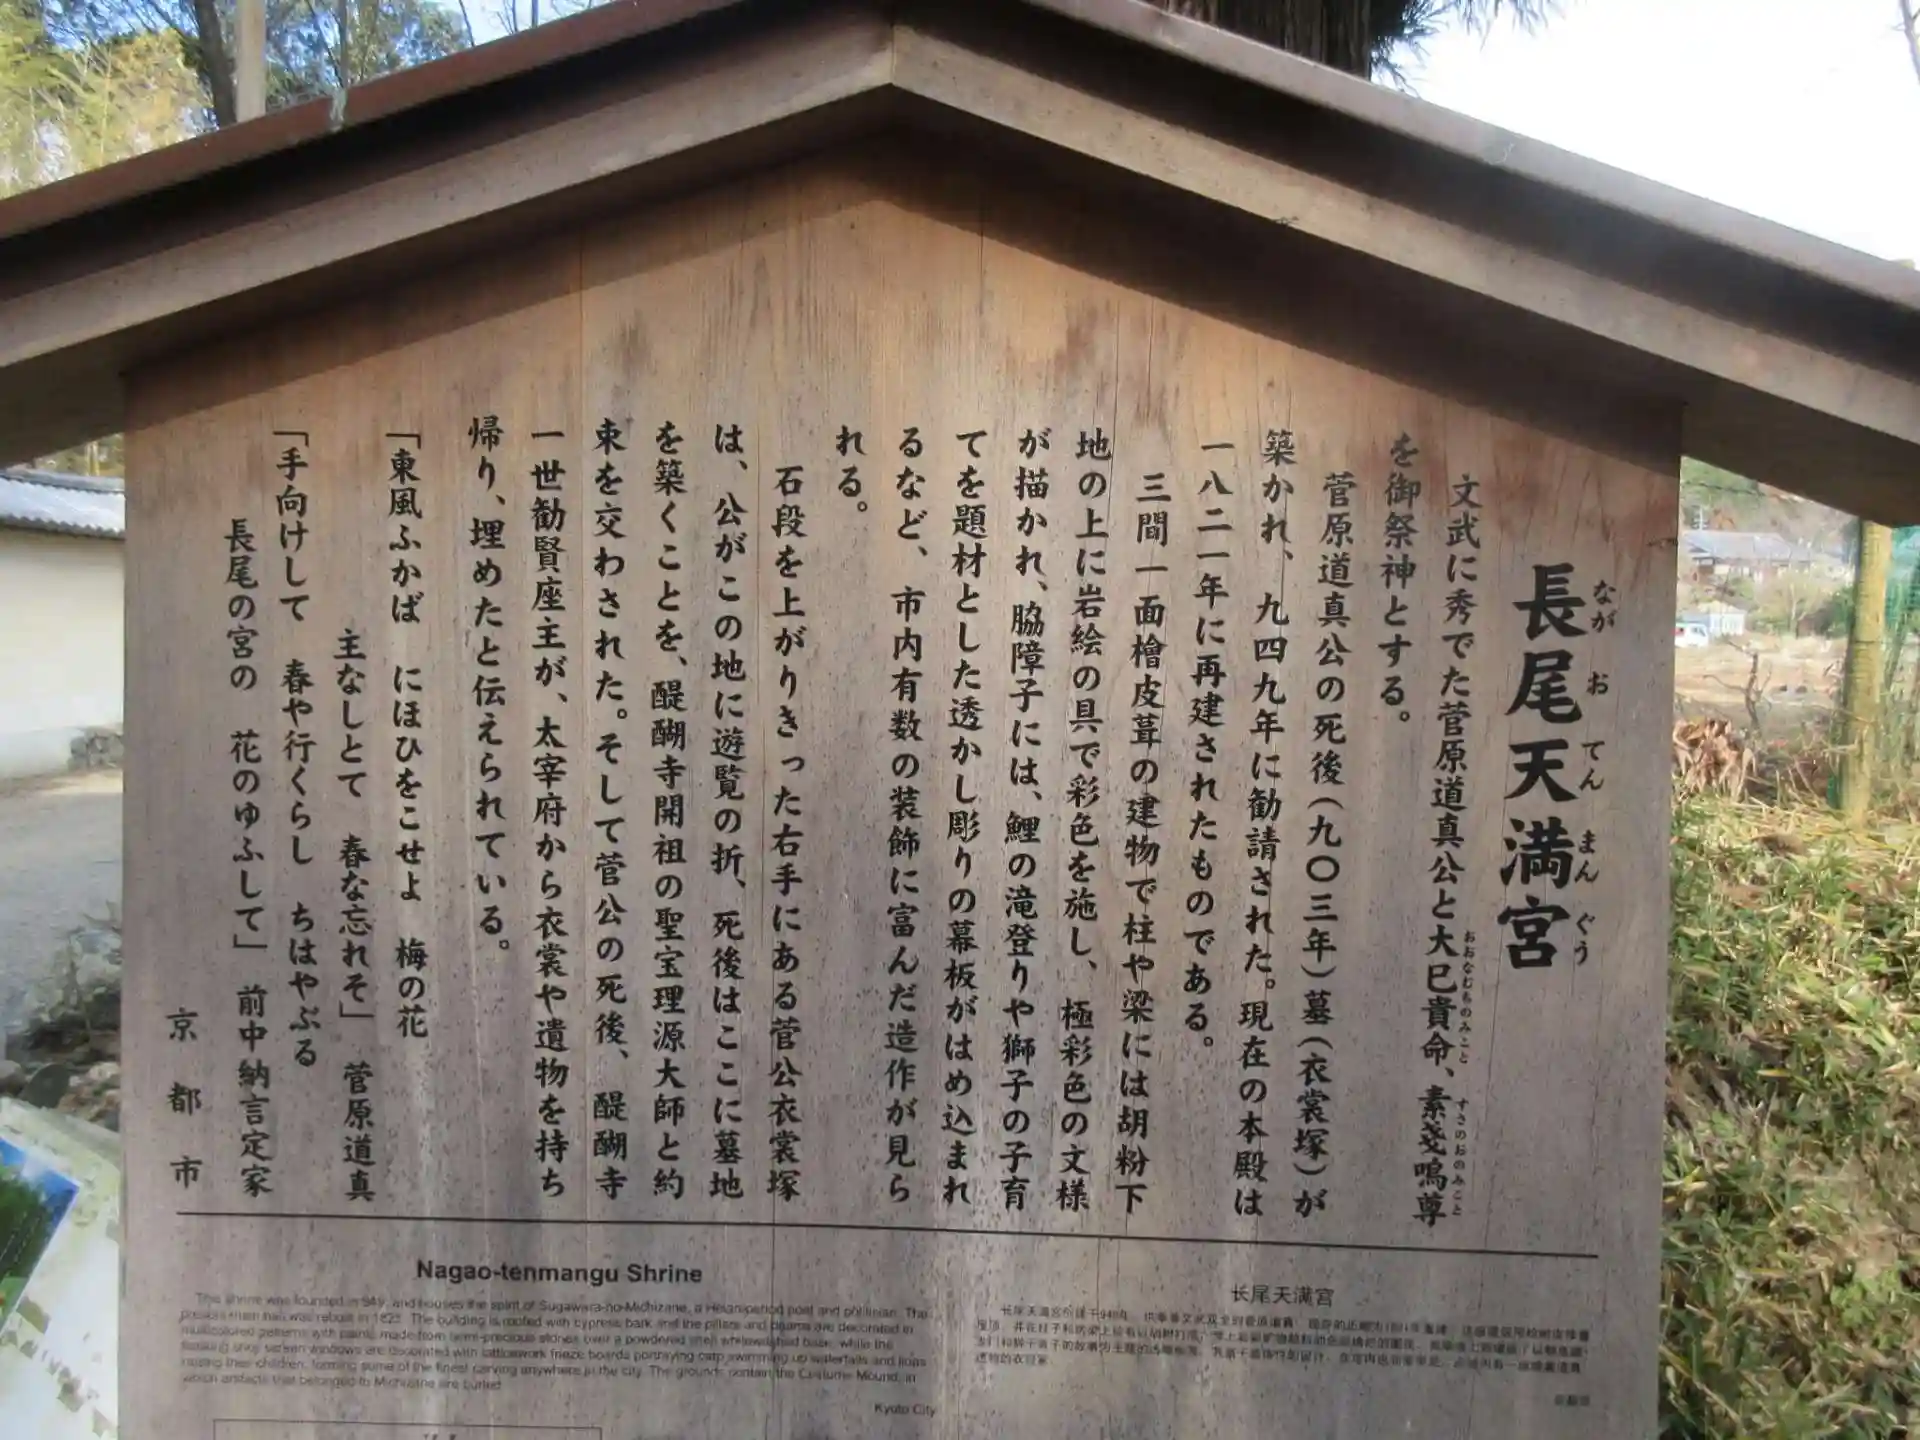 長尾天満宮
ながおてんまんぐう
文武に秀でた菅原道真公と大巳貴命、素戔嗚尊
おおなむちのみこと
すさのおのみこと
を御祭神とする。
菅原道真公の死後(九〇三年)墓(衣裳塚)が
築かれ、九四九年に勧請された。現在の本殿は
一八二一年に再建されたものである。
三間一面檜皮葺の建物で柱や梁には胡粉下
地の上に岩絵の具で彩色を施し、極彩色の文様
が描かれ、脇障子には、鯉の滝登りや獅子の子育
てを題材とした透かし彫りの幕板がはめ込まれ
るなど、市内有数の装飾に富んだ造作が見ら
れる。
石段を上がりきった右手にある菅公衣裳塚
は、公がこの地に遊覧の折、死後はここに墓地
を築くことを、醍醐寺開祖の聖宝理源大師と約
束を交わされた。そして菅公の死後、醍醐寺
一世勧賢座主が、太宰府から衣裳や遺物を持ち
帰り、埋めたと伝えられている。
「東風ふかば にほひをこせよ 梅の花
主なしとて 春な忘れそ」 菅原道真
「手向けして 春や行くらし ちはやぶる
長尾の宮の 花のゆふして」 前中納言定家
京都市
Nagao-tenmangu Shrine
This shrine was founded in 949, and houses the spirit of Sugawara-no-Michizane, a Heian-period poet and politician. The
present main hall was rebuilt in 1822. The building is roofed with cypress bark and the pillars and beams are decorated in
multicolored patterns with paints made from semi-precious stones over a powdered shell whitewashed base, while the
flanking shoji screen windows are decorated with latticework frieze boards portraying carp swimming up waterfalls and lions
raising their children, forming some of the finest carving anywhere in the city. The grounds contain the Costume Mound, in
which artifacts that belonged to Michizane are buried.
Kyoto City
长尾天满宫